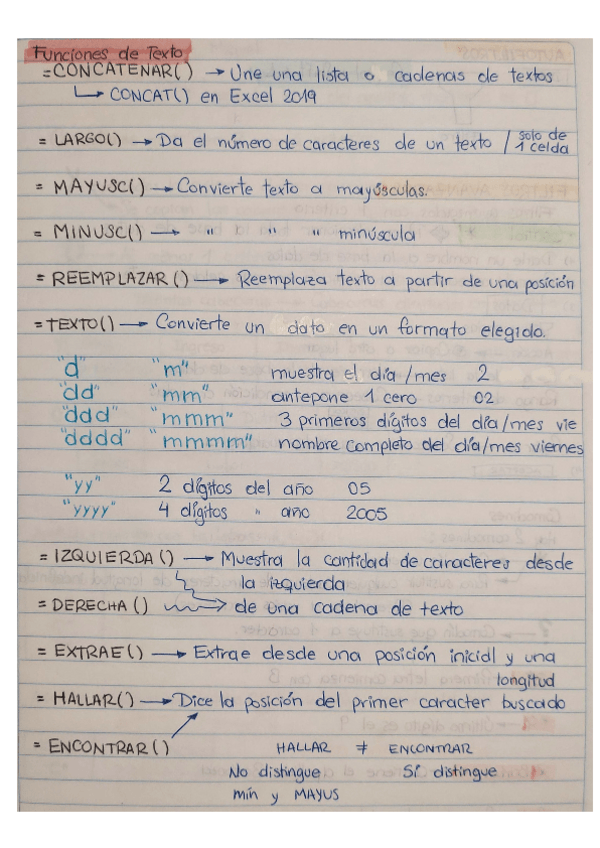 Funciones de Texto
=CONCATENAR() → Une una lista o cadenas de textos
↳ CONCAT() en Excel 2019
= LARGO() → Da el número de caracteres de un texto / solo de 1 celda
= MAYUSC() → Convierte texto a mayúsculas.
= MINUSC() → " " " minúscula
= REEMPLAZAR () → Reemplaza texto a partir de una posición
=TEXTO() → Convierte un dato en un formato elegido.
"d" "m" muestra el día/mes 2
"dd" "mm" antepone 1 cero 02
"ddd" "mmm" 3 primeros dígitos del día/mes vie
"dddd" "mmmm" nombre completo del día/mes viernes
"yy" 2 dígitos del año 05
"yyyy" 4 dígitos " año 2005
= IZQUIERDA () → Muestra la cantidad de caracteres desde
la izquierda
= DERECHA () → de una cadena de texto
= EXTRAE() → Extrae desde una posición inicial y una
longitud
= HALLAR() → Dice la posición del primer caracter buscado
= ENCONTRAR () HALLAR ≠ ENCONTRAR
No distingue Sí distingue
min y MAYUS